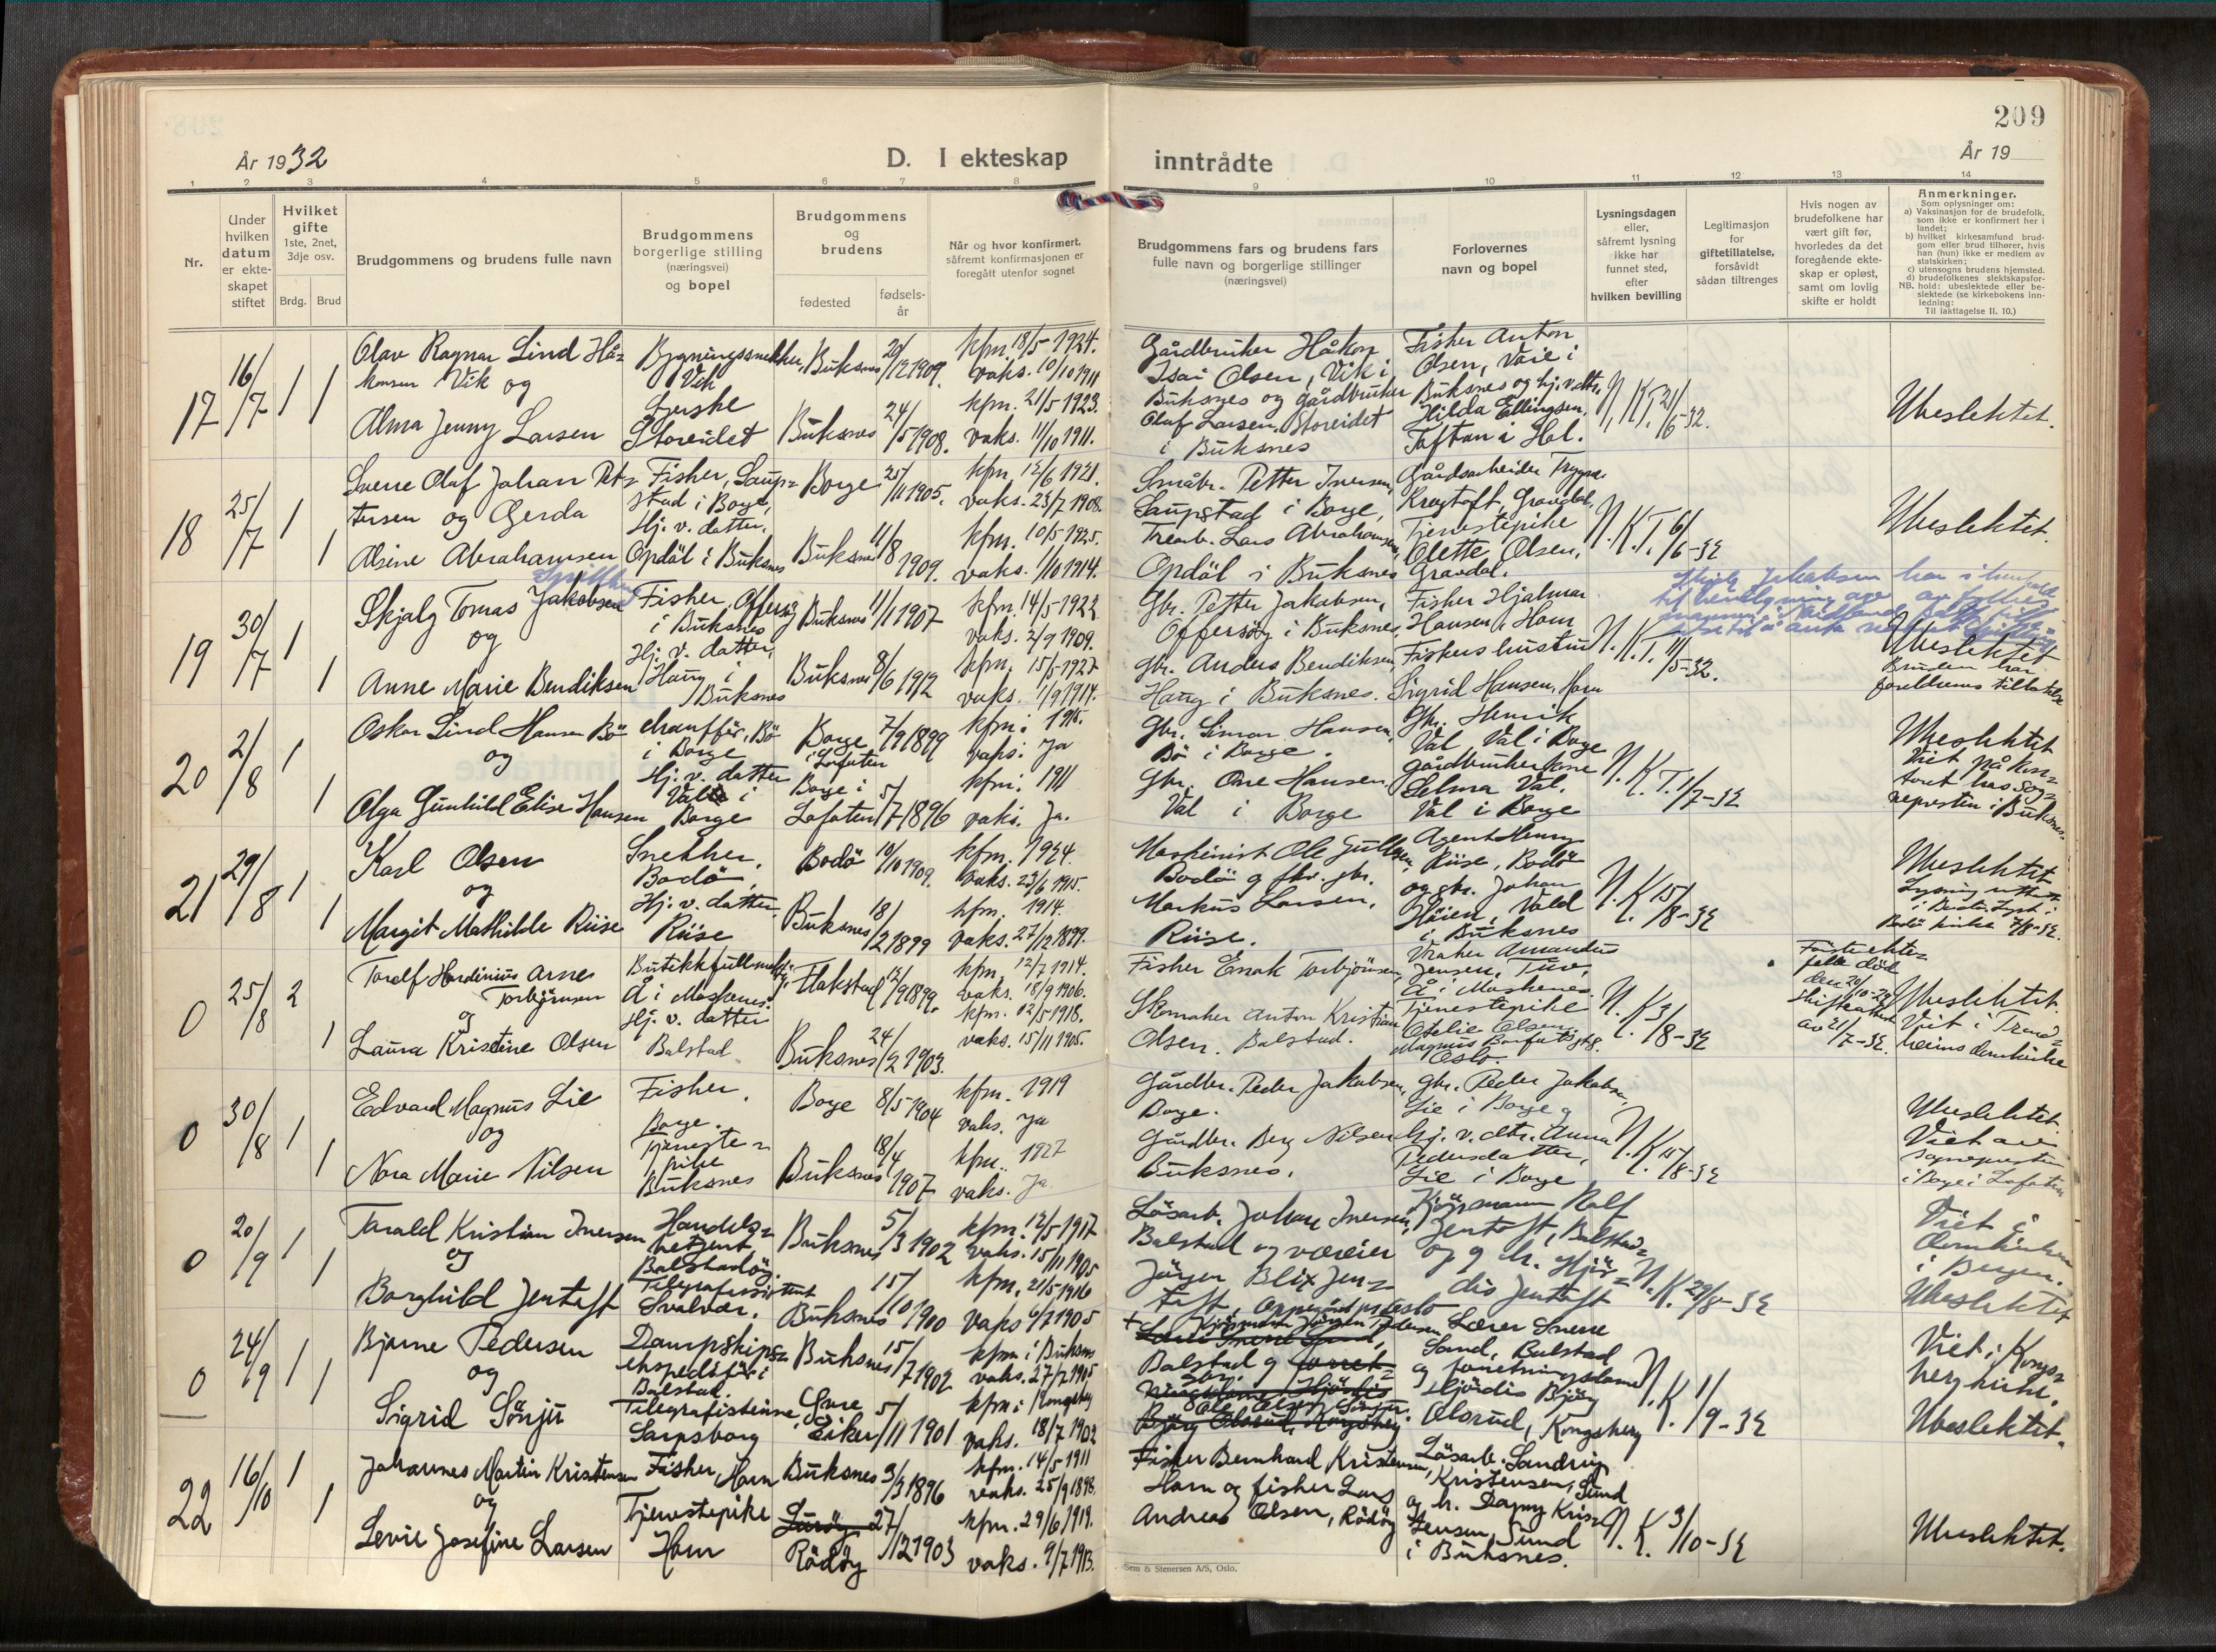 209
År 1932
D. I ekteskap
inntrådte
År 19
1 2 3 4 5 6 7 8 9 10 11 12 13 14
Nr.
Under hvilken datum er ekte-skapet stiftet
Hvilket gifte 1ste, 2net, 3dje osv.
Brdg. Brud
Brudgommens og brudens fulle navn
Brudgommens borgerlige stilling (næringsvei) og bopel
Brudgommens og brudens
fødested
fødsels-år
Når og hvor konfirmert, såfremt konfirmasjonen er foregått utenfor sognet
Brudgommens fars og brudens fars fulle navn og borgerlige stillinger (næringsvei)
Forlovernes navn og bopel
Lysningsdagen eller, såfremt lysning ikke har funnet sted, efter hvilken bevilling
Legitimasjon for giftetillatelse, forsåvidt sådan tiltrenges
Hvis nogen av brudefolkene har vært gift før, hvorledes da det foregående ekte-skap er opløst, samt om lovlig skifte er holdt
Anmerkninger.
Som oplysninger om:
a) Vaksinasjon for de brudefolk, som ikke er konfirmert her i landet;
b) hvilket kirkesamfund brud-gom eller brud tilhører, hvis han (hun) ikke er medlem av statskirken;
c) utensogns brudens hjemsted.
d) brudefolkenes slektskapsfor-
NB. hold: ubeslektede eller be-slektede (se kirkebokens inn-ledning:
Til iakttagelse II. 10.)
17 16/7 1 1
Olav Ragnar Lind Hå-
konsen Vik og
Alma Jenny Larsen
Bygningssnekker,
Vik
Storeidet
Buksnes 20/12 1909.
Buksnes 24/5 1908.
kfm. 18/5 1924.
vaks. 10/10 1911
kfm. 21/5 1923.
vaks. 11/10 1911.
Gårdbruker Håkon
Isai Olsen, Vik i
Buksnes og gårdbruker
Olaf Larsen, Storeidet
i Buksnes
Fisker Anton
Olsen, Våie i
Buksnes og hj.v.dtr.
Hilda Ellingsen,
Toftan i Hol.
N.K.T. 21/6-32.
Ubeslektet.
18 25/7 1 1
Sverre Olaf Johan Pet-
tersen og Gerda
Alsine Abrahamsen
Fisker, Saup-
stad i Borge,
Hj. v. datter,
Opdøl i Buksnes
Borge 25/11 1905.
Buksnes 11/8 1909.
kfm. 12/6 1921.
vaks. 23/7 1908.
kfm. 10/5 1925.
vaks. 1/10 1914.
Småbr. Petter Iversen,
Saupstad i Borge,
Trearb. Lars Abrahamsen,
Opdøl i Buksnes
Gårdsarbeider Trygve
Kragtoft, Gravdal,
Tjenestepike
Olette Olsen,
Gravdal.
N.K.T. 6/6-32
Ubeslektet.
19 30/7 1 1
Skjalg Tomas Jakobsen
og
Anne Marie Bendiksen
Fisker, Offersøy
i Buksnes
Hj. v. datter,
Haug i
Buksnes
Buksnes 11/1 1907
Buksnes 8/6 1912
kfm. 14/5 1922
vaks. 2/9 1909.
kfm. 15/5 1927
vaks. 1/9 1914.
Gbr. Petter Jakobsen,
Offersøy i Buksnes,
Gbr. Anders Bendiksen,
Haug i Buksnes.
Fisker Hjalmar
Hansen, Horn
Fiskers hustru
Sigrid Hansen, Horn
N.K.T. 11/5-32.
Skjalg Jakobsen har i henhold
til bevilgning av
Ubeslektet
Bruden har
foreldrenes tillatelse
20 2/8 1 1
Oskar Lind Hansen Bø
og
Olga Gunhild Elise Hansen
Chauffør, Bø
i Borge
Hj. v. datter
Val i
Borge
Borge i Lofoten 7/9 1899
Borge i Lofoten 5/7 1896
kfm: 1915.
vaks: Ja
kfm: 1911
vaks. Ja.
Gbr. Simon Hansen,
Bø i Borge.
Gbr. Ove Hansen,
Val i Borge
Gbr. Henrik
Val Val i Borge
gårdbrukerkone
Selma Val.
Val i Borge
N.K.T. 1/7-32
Ubeslektet
Viet på kon-
toret hos sog-
nepresten i Buksnes.
21 29/8 1 1
Karl Olsen
og
Margit Mathilde Riise
Snekker,
Bodø
Hj. v. datter
Riise
Bodø 10/10 1909.
Buksnes 18/2 1899
kfm. 1924.
vaks. 23/6 1915.
kfm. 1914.
vaks. 27/12 1899.
Maskinist Ole
Bodø og gbr.
Markus Larsen,
Riise.
Agent Henry
Riise, Bodø
og gbr. Johan
Høien, Vold
i Buksnes
N.K. 15/8-32
Ubeslektet
Bodø kirke 7/8-32.
0 25/8 2 1
Toralf Hardinius Arne
Torbjørnsen
og
Laura Kristine Olsen
Butikkfullmektig,
Å i Moskenes.
Hj. v. datter
Balstad
Flakstad 12/9 1899.
Buksnes 24/2 1903.
kfm. 12/7 1914.
vaks. 18/9 1906.
kfm. 12/5 1918.
vaks. 15/11 1905.
Fisker Enok Torbjørnsen,
Skomaker Anton Kristian
Olsen. Balstad.
Vraker Amandus
Jensen, Tuv,
Å i Moskenes.
Tjenestepike
Ofelie Olsen,
Oslo.
N.K. 3/8-32
Første ekte-
felle død
den 20/10-29
Skifteattest
av 21/7-32.
Ubeslektet.
Viet i Trond-
heims domkirke
0 30/8 1 1
Edvard Magnus Lie
og
Nora Marie Nilsen
Fisker.
Borge.
Tjeneste-
pike
Buksnes
Borge 8/5 1904
Buksnes 18/4 1907
kfm. 1919
vaks. Ja
kfm. 1927
vaks. Ja
Gårdbr. Peder Jakobsen,
Borge.
Gårdbr. Berg Nilsen
Buksnes.
Gbr. Peder Jakobsen,
Lie i Borge og
hj. v. dtr. Anna
Pedersdatter,
Lie i Borge
N.K. 15/8-32
Ubeslektet.
Viet av
sognepresten
i Borge i Lofoten
0 20/9 1 1
Torald Kristian Iversen
og
Borghild Jentoft
Handels-
betjent
Balstadøy.
Telegrafassistent
Svolvær.
Buksnes 5/3 1902
Buksnes 15/10 1900
kfm. 12/5 1917
vaks. 15/11 1905
kfm. 21/5 1916
vaks 6/7 1905
Løsarb. Johan Iversen,
Balstad og væreier
Jørgen Blix Jen-
toft,
Kjøpmann Rolf
Jentoft, Balstad
og Hjør-
dis Jentoft
N.K. 29/8-32
Viet i
domkirken
i Bergen.
Ubeslektet
0 24/9 1 1
Bjarne Pedersen
og
Sigrid Sønju
Dampskips-
ekspeditør i
Balstad.
Telegrafistinne,
Sarpsborg
Buksnes 15/7 1902
Øvre Eiker 5/11 1901
kfm i Buksnes
vaks. 27/7 1905
kfm i Kongsberg
vaks. 18/7 1902
Kjøpmann Jørgen Pedersen
Balstad og
Lærer Sverre
Sand, Balstad
og forretningsdame
Hjørdis Bjørg
Olsrud, Kongsberg
N.K. 1/9-32
Viet i Kongs-
berg kirke.
Ubeslektet.
22 16/10 1 1
Johannes Martin Kristensen
og
Levie Josefine Larsen
Fisker, Horn
Tjenestepike
Horn
Buksnes 3/3 1896
Rødøy 27/12 1903
kfm. 14/5 1911
vaks. 25/9 1898.
kfm. 29/6 1919.
vaks. 9/7 1913.
Fisker Bernhard Kristensen,
Horn og fisker Lars
Andreas Olsen, Rødøy
Løsarb.
Kristensen, Sund
og fr. Dagny Kris-
tensen, Sund
i Buksnes.
N.K. 3/10-32
Ubeslektet.
Sem & Stenersen A/S, Oslo.